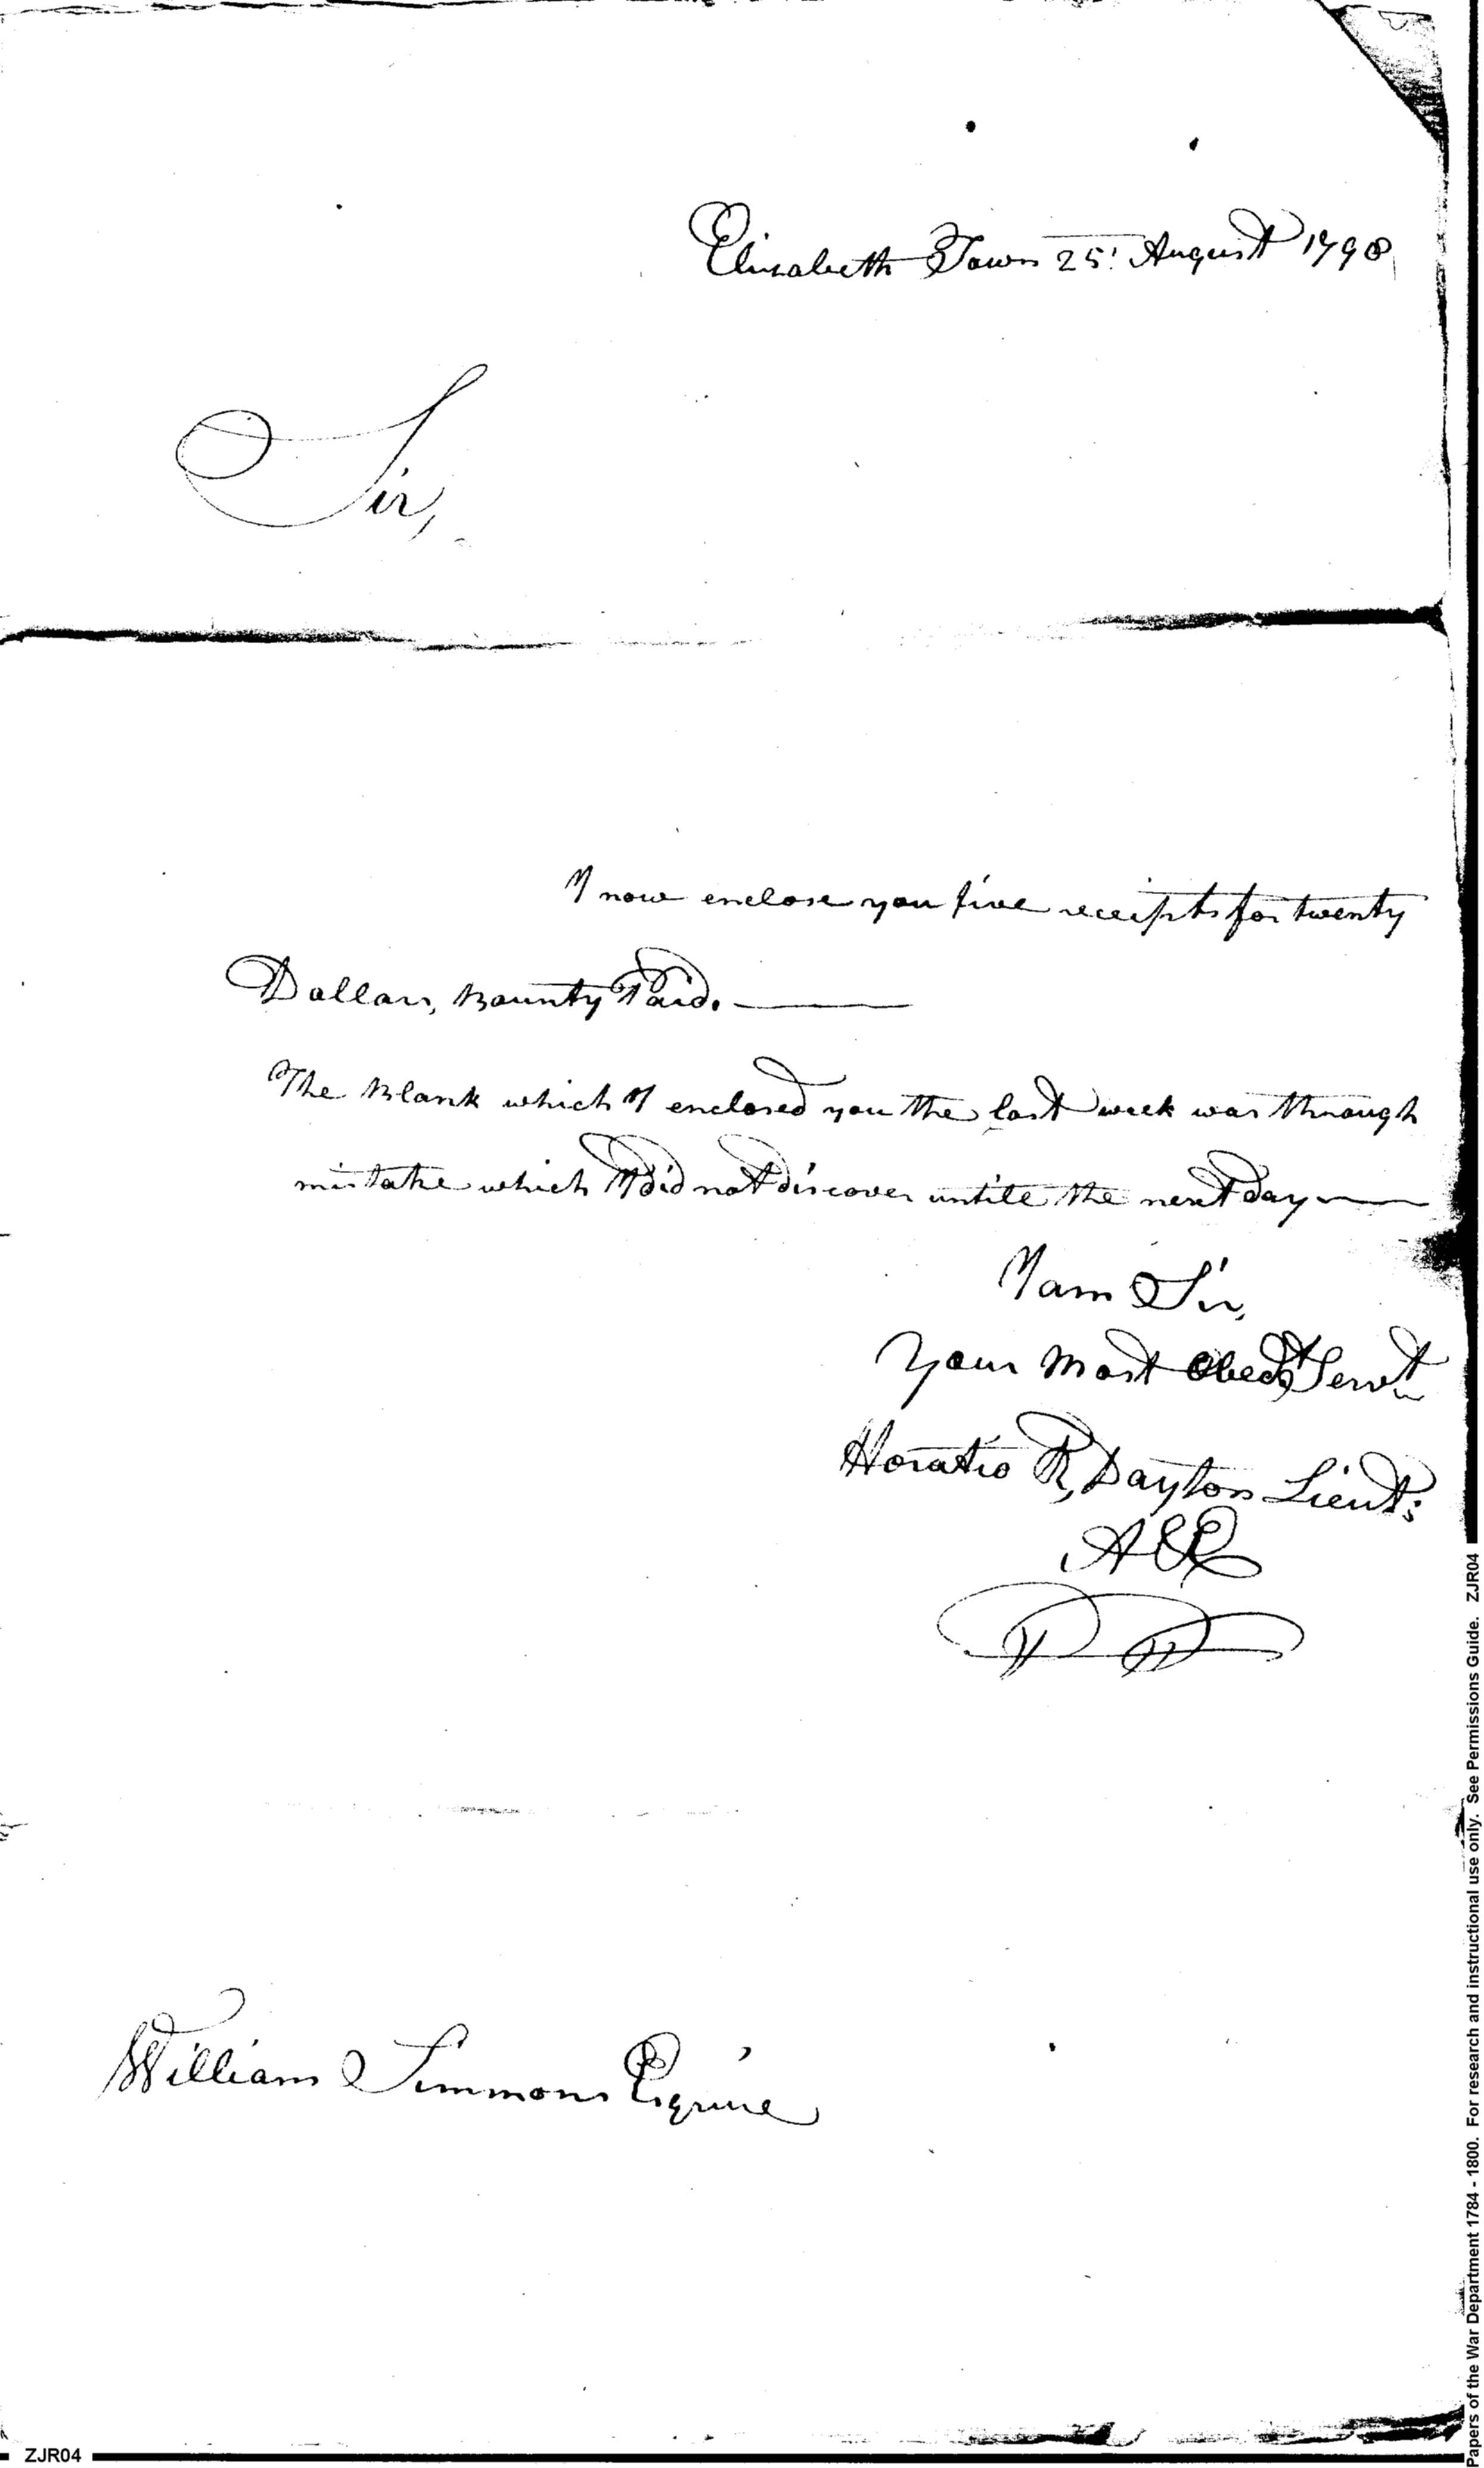 Elisabeth Town 25: August 1798
Sir,
I now enclose you five receipts for twenty
Dollars, Bounty Paid.
The Blank which I enclosed you the last week was through
mistake which I did not discover untile the next day
I am Sir,
Your Most Obedt Servt
Horatio R, Dayton Lieut:
William Simmons Esquire
ZJR04
Papers of the War Department 1784 - 1800. For research and instructional use only. See Permissions Guide. ZJR04